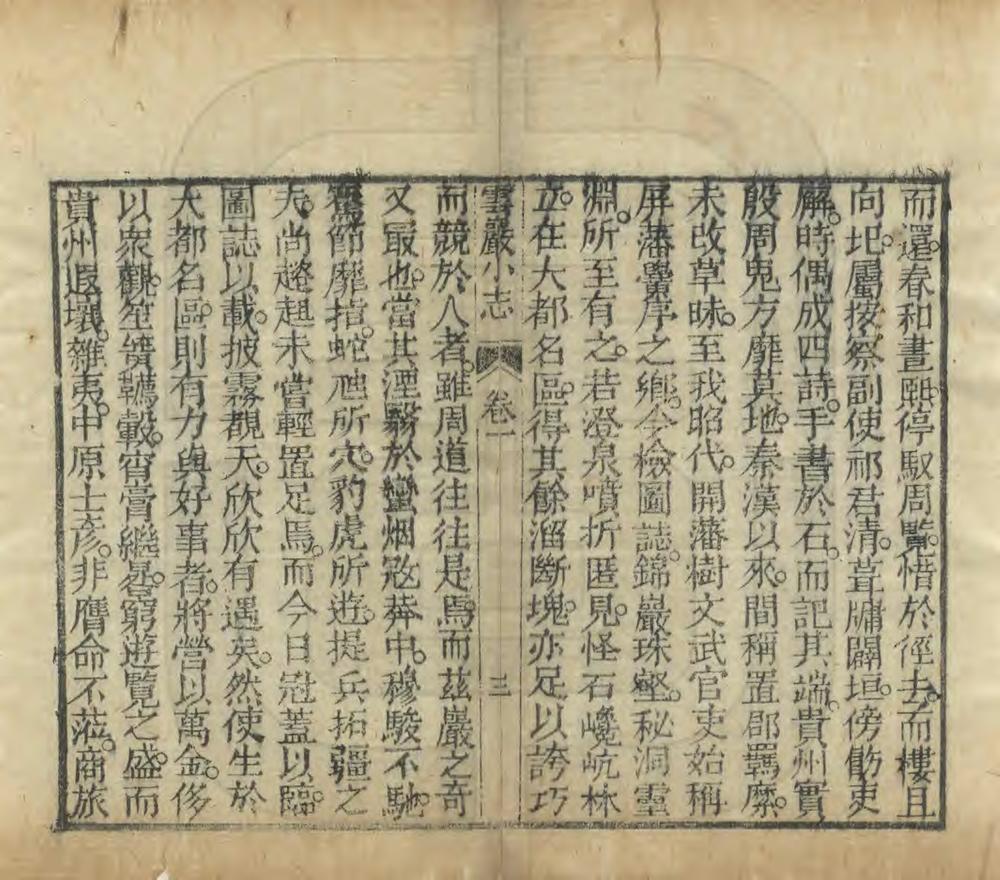 而還。春和晝熙停馭周覽惜於徑去。而樓且
向圯。屬按察副使祁君清葺牖闢垣。傍飭吏
廨。時偶成四詩。手書於石。而記其端。貴州實
殷周鬼方靡莫地。秦漢以來。間稱置郡羈縻。
未改草昧。至我昭代。開藩樹文武官吏始稱
屏藩黌序之鄉。今檢圖誌。錦巖珠壑。秘洞靈
淵。所至有之。若澄泉噴折匿見。怪石巉屼林
立。在大都名區。得其餘溜斷塊。亦足以誇巧
雲巖小志 卷一 三
而競於人者。雖周道往往是焉。而茲巖之奇
又最也。當其湮翳於蠻烟𥨸莽中。穆駿不馳。
騫節靡指。蛇虺所穴。豹虎所遊。提兵拓疆之
夫。尚趦趄未嘗輕置足焉。而今日冠蓋以臨。
圖誌以載。披霧覩天。欣欣有遇矣。然使生於
大都名區。則有力與好事者。將營以萬金。侈
以衆觀。笙簧韉轂。宵膏繼晷。窮遊覽之盛。而
貴州遐壤。雜夷。中原士彥。非膺命不蒞。商旅